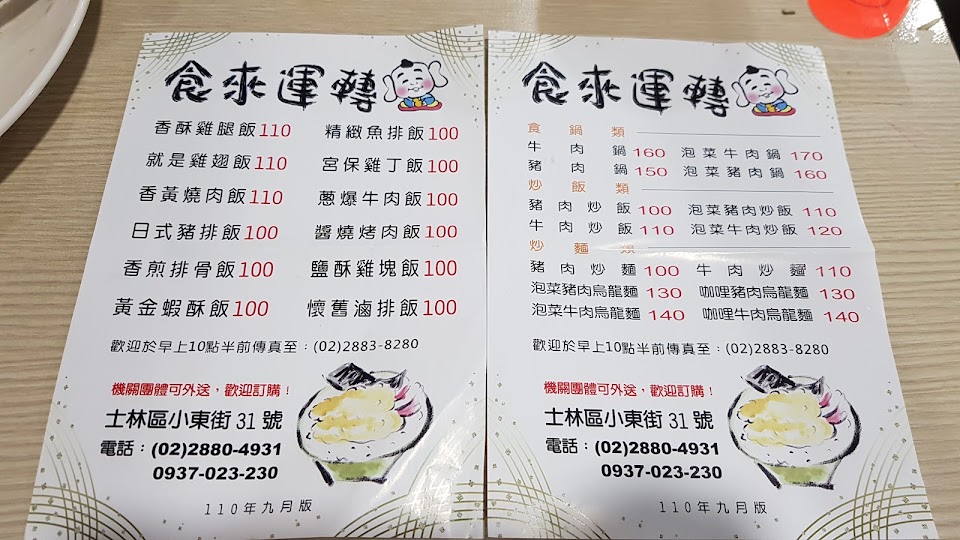 食來運轉
香酥雞腿飯110 精緻魚排飯100
就是雞翅飯110 宮保雞丁飯100
香黃燒肉飯110 蔥爆牛肉飯100
日式豬排飯100 醬燒烤肉飯100
香煎排骨飯100 鹽酥雞塊飯100
黃金蝦酥飯100 懷舊滷排飯100
歡迎於早上10點半前傳真至：(02)2883-8280
機關團體可外送，歡迎訂購！
士林區小東街 31 號
電話：(02)2880-4931
0937-023-230
110年九月版
食來運轉
食鍋類
牛肉鍋 160 泡菜牛肉鍋 170
豬肉鍋 150 泡菜豬肉鍋 160
炒飯類
豬肉炒飯 100 泡菜豬肉炒飯 110
牛肉炒飯 110 泡菜牛肉炒飯 120
炒麵類
豬肉炒麵 100 牛肉炒麵 110
泡菜豬肉烏龍麵 130 咖哩豬肉烏龍麵 130
泡菜牛肉烏龍麵 140 咖哩牛肉烏龍麵 140
歡迎於早上10點半前傳真至：(02)2883-8280
機關團體可外送，歡迎訂購！
士林區小東街 31 號
電話：(02)2880-4931
0937-023-230
110年九月版